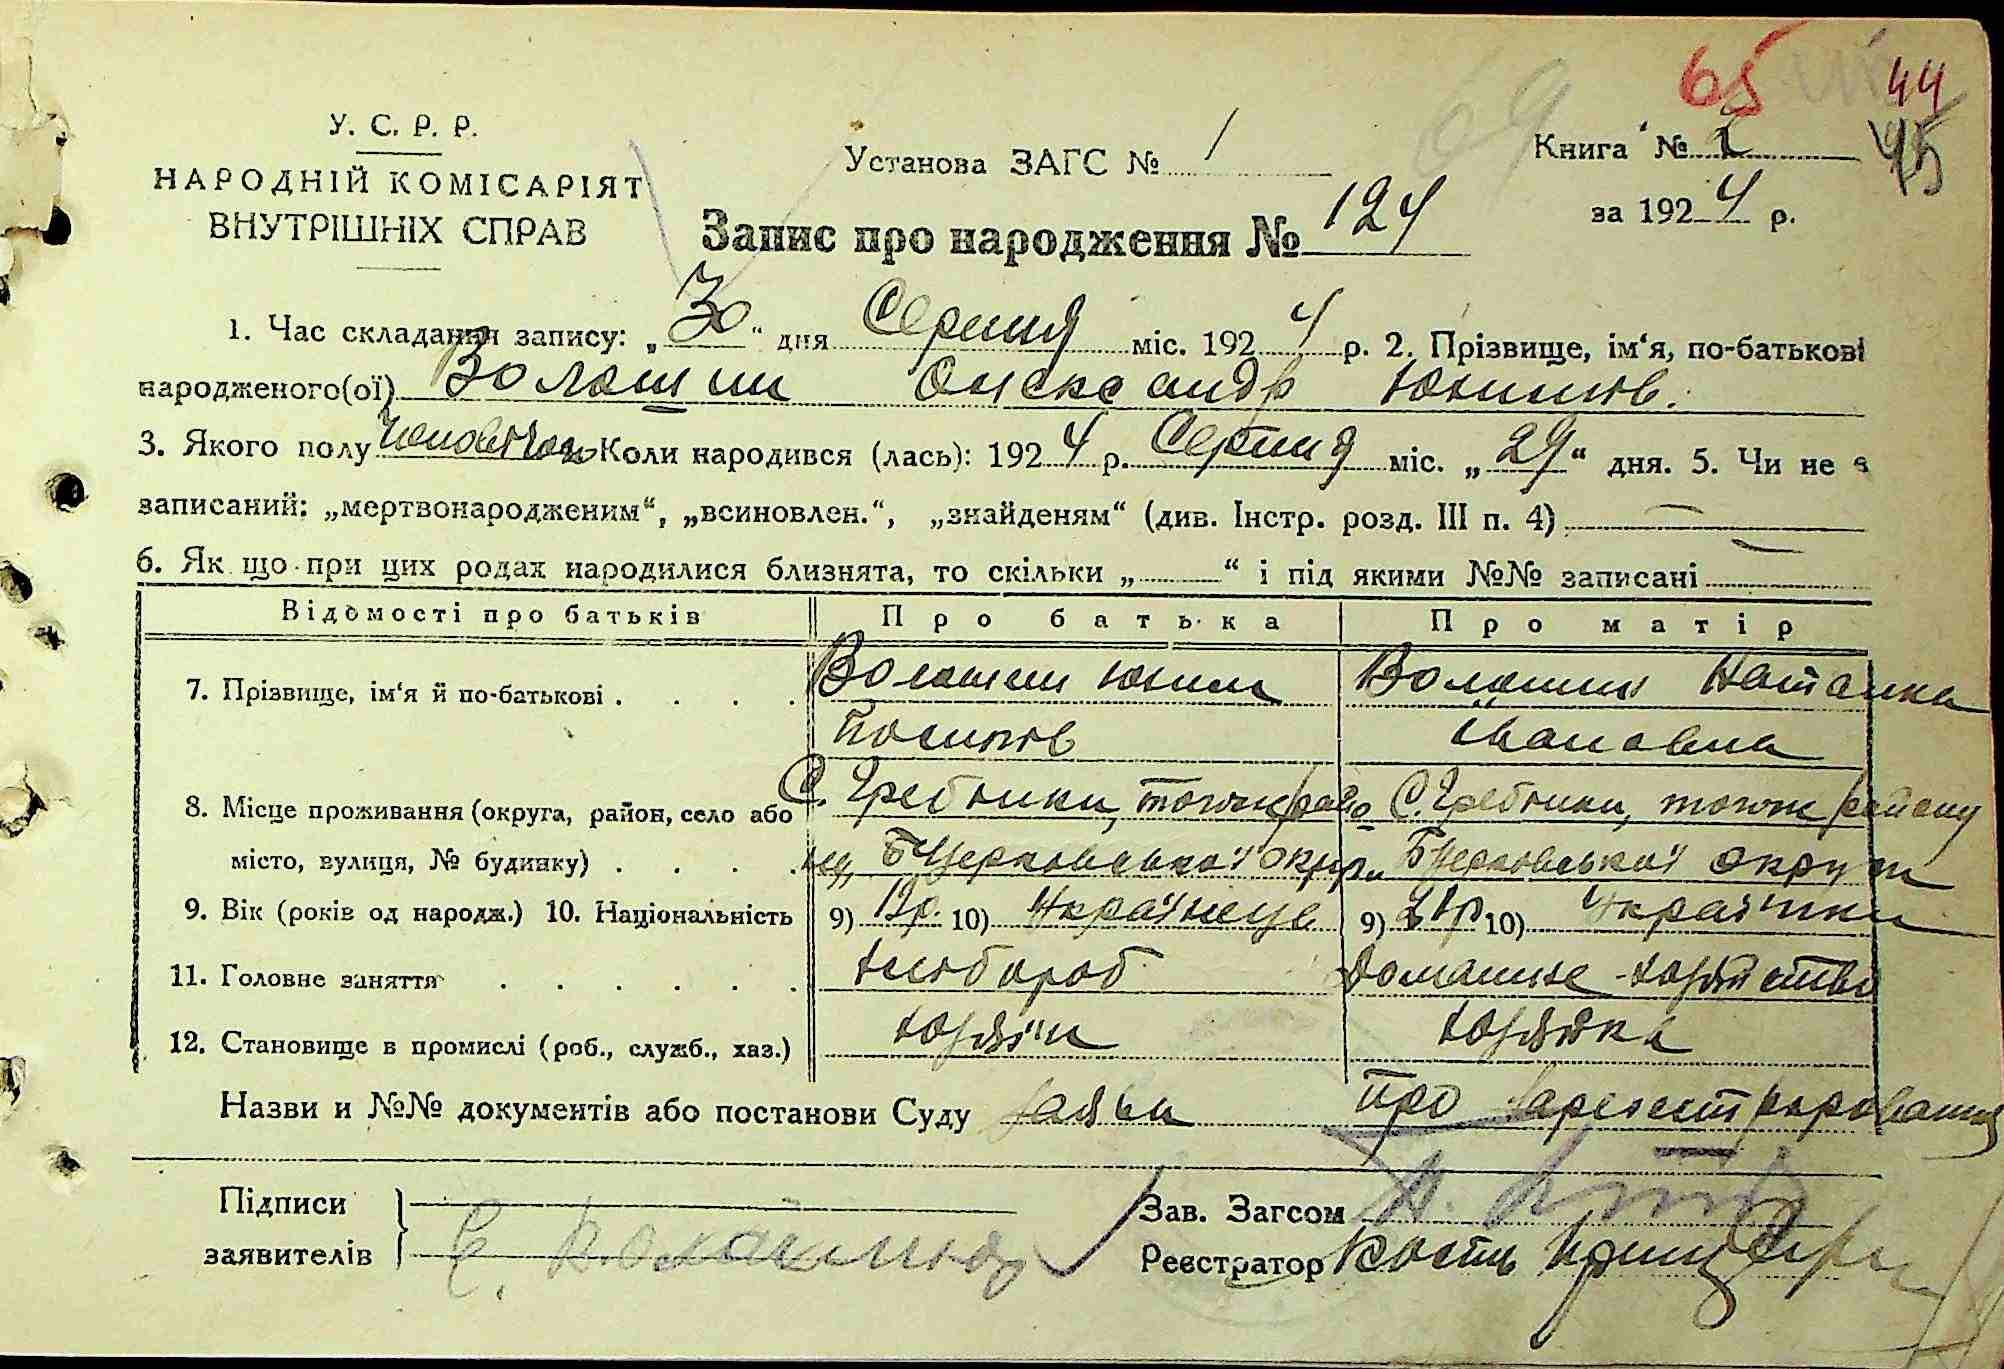 65 44
45
69
У. С. Р. Р.
НАРОДНІЙ КОМІСАРІЯТ
ВНУТРІШНІХ СПРАВ
Установа ЗАГС № 1
Книга №
за 1924 р.
Запис про народження № 124
1. Час складання запису: „30“ дня Серпня міс. 1924 р. 2. Прізвище, ім‘я, по-батькові
народженого(ої) Волошин Олександр Юхимів.
3. Якого полу Коли народився (лась): 1924 р. Серпня міс. „29“ дня. 5. Чи не є
записаний: „мертвонародженим“, „всиновлен.“, „знайденям“ (див. Інстр. розд. III п. 4) —
6. Як що при цих родах народилися близнята, то скільки „ “ і під якими №№ записані —
Відомості про батьків Про батька Про матір
7. Прізвище, ім‘я й по-батькові . . . . Волошин Юхим Волошин Наталка
Івановна
8. Місце проживання (округа, район, село або С. Гребінки, того ж райо С. Гребінки, того ж району
місто, вулиця, № будинку) . . . . ну, БЦерковської окр. БЦерковської округи
9. Вік (років од народж.) 10. Національність 9) 10) Українець 9) 10) Українка
11. Головне заняття . . . . . . хлібороб Домашнє
12. Становище в промислі (роб., служб., хаз.)
Назви и №№ документів або постанови Суду заява про зареєстрировання
Підписи
заявителів
Зав. Загсом
Реєстратор Кость